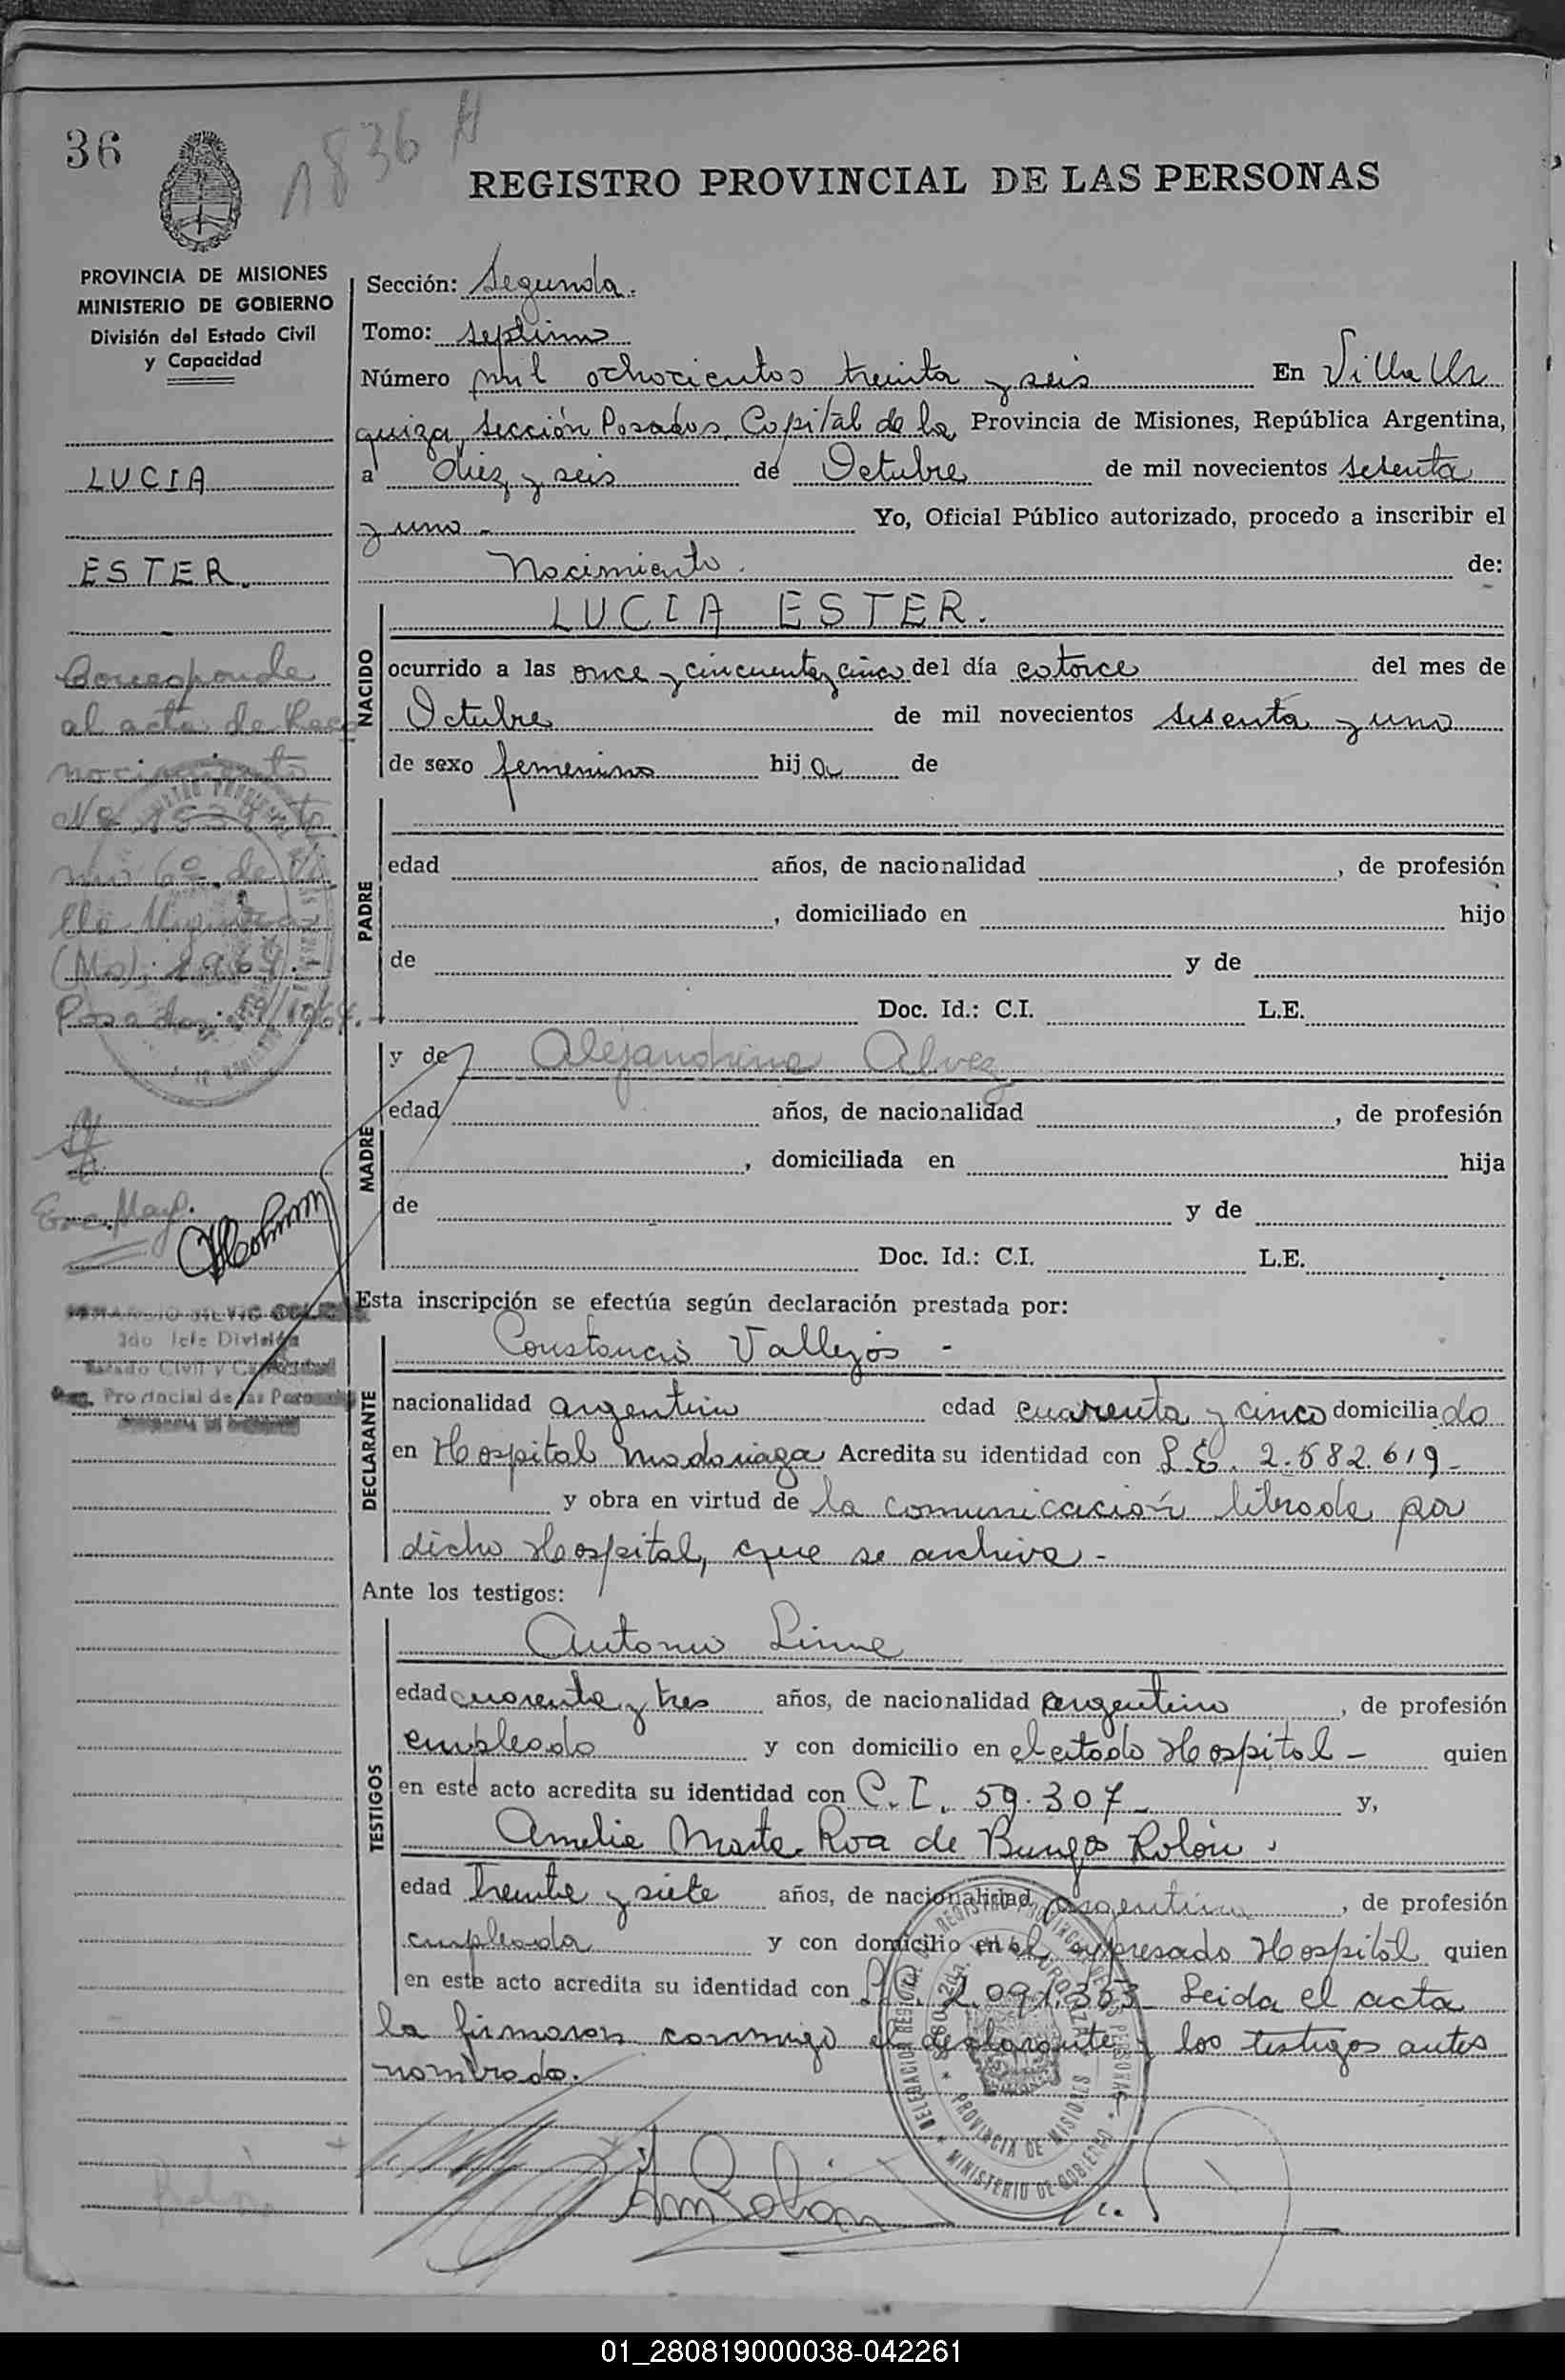 36
1836 N
REGISTRO PROVINCIAL DE LAS PERSONAS
PROVINCIA DE MISIONES
MINISTERIO DE GOBIERNO
División del Estado Civil
y Capacidad
LUCIA
ESTER.
Corresponde
al acta de Reco
nocimiento
Nº
mo 6º de Vi
lla Urquiza
(Ms). 1964.
Posadas
Enc. Mayo.
2do Jefe División
Estado Civil y Capacidad
Reg. Provincial de las Personas
Sección: Segunda.
Tomo: septimo
Número mil ochocientos treinta y seis En Villa Ur
quiza, Sección Posadas, Capital de la Provincia de Misiones, República Argentina,
a diez y seis de Octubre de mil novecientos sesenta
y uno - Yo, Oficial Público autorizado, procedo a inscribir el
Nacimiento. de:
NACIDO
LUCIA ESTER.
ocurrido a las once y cincuenta y cinco del día catorce del mes de
Octubre de mil novecientos sesenta y uno
de sexo femenino hij a de
PADRE
edad años, de nacionalidad , de profesión
, domiciliado en hijo
de y de
Doc. Id.: C.I. L.E.
MADRE
y de Alejandrina Alvez
edad años, de nacionalidad , de profesión
, domiciliada en hija
de y de
Doc. Id.: C.I. L.E.
Esta inscripción se efectúa según declaración prestada por:
DECLARANTE
Constancio Vallejos -
nacionalidad argentino edad cuarenta y cinco domiciliado
en Hospital Madariaga Acredita su identidad con L.E. 2.582.619-
y obra en virtud de la comunicación librada por
dicho Hospital, que se archiva -
Ante los testigos:
TESTIGOS
Antonio
edad cuarenta y tres años, de nacionalidad argentino , de profesión
empleado y con domicilio en el citado Hospital - quien
en este acto acredita su identidad con C.I. 59.307 - y,
Amelia Marta Roa de Burgos Rolón.
edad treinta y siete años, de nacionalidad argentina , de profesión
empleada y con domicilio en el expresado Hospital quien
en este acto acredita su identidad con L.C. 2.091.353 - Leida el acta
la firmaron conmigo el declarante y los testigos antes
nombrado.
DELEGACION REGISTRO PROVINCIAL DE LAS PERSONAS
PROVINCIA DE MISIONES
MINISTERIO DE GOBIERNO
AmRolón
01_280819000038-042261